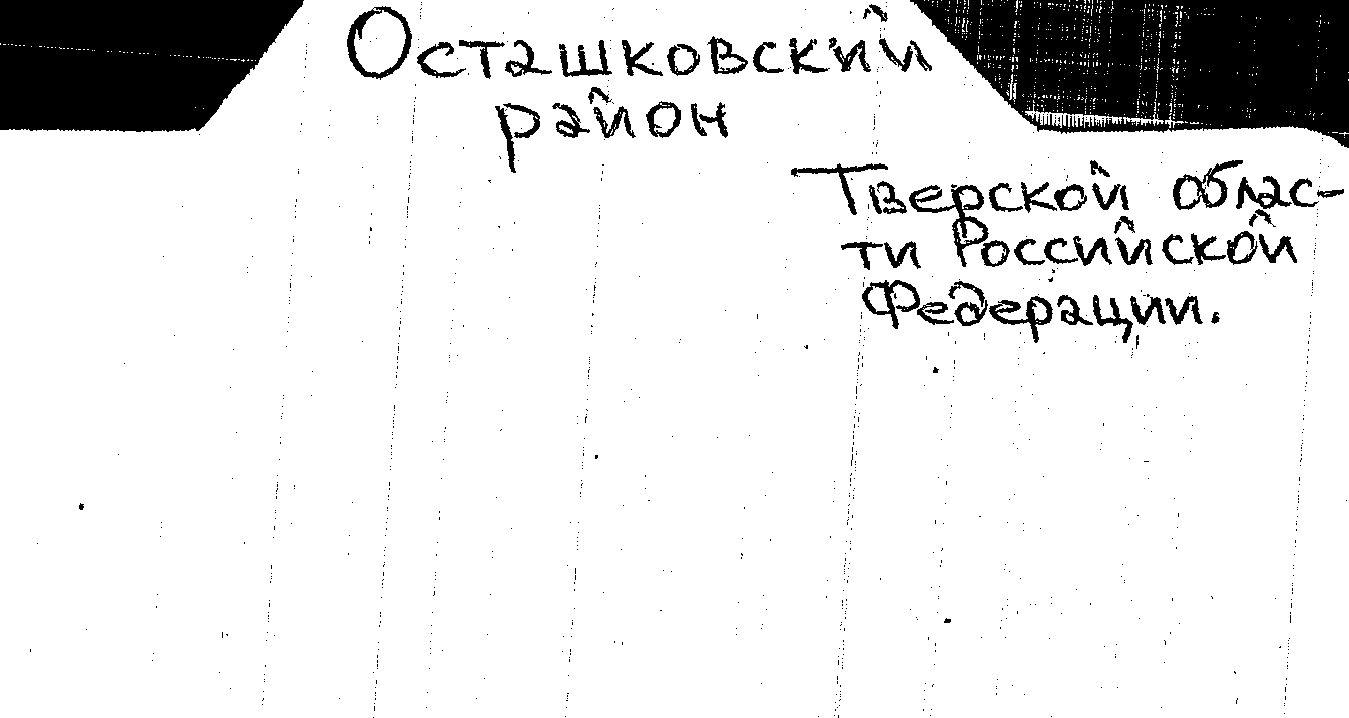 Осташковский
район
Тверской облас-
ти Российской
Федерации.